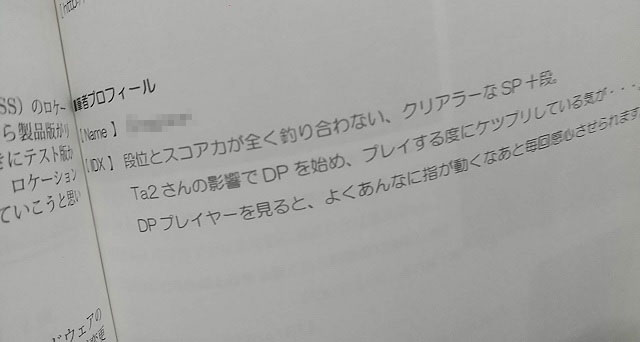 [http
SS）のロケー
ら製品版が
きにテスト版が
ロケーション
ていこうと思い
ドウェアの
筆者プロフィール
【Name 】
【IIDX 】 段位とスコア力が全く釣り合わない、クリアラーなSP十段。
Ta2さんの影響でDPを始め、プレイする度にケツプリしている気が・・・。
DPプレイヤーを見ると、よくあんなに指が動くなあと毎回感心させられます